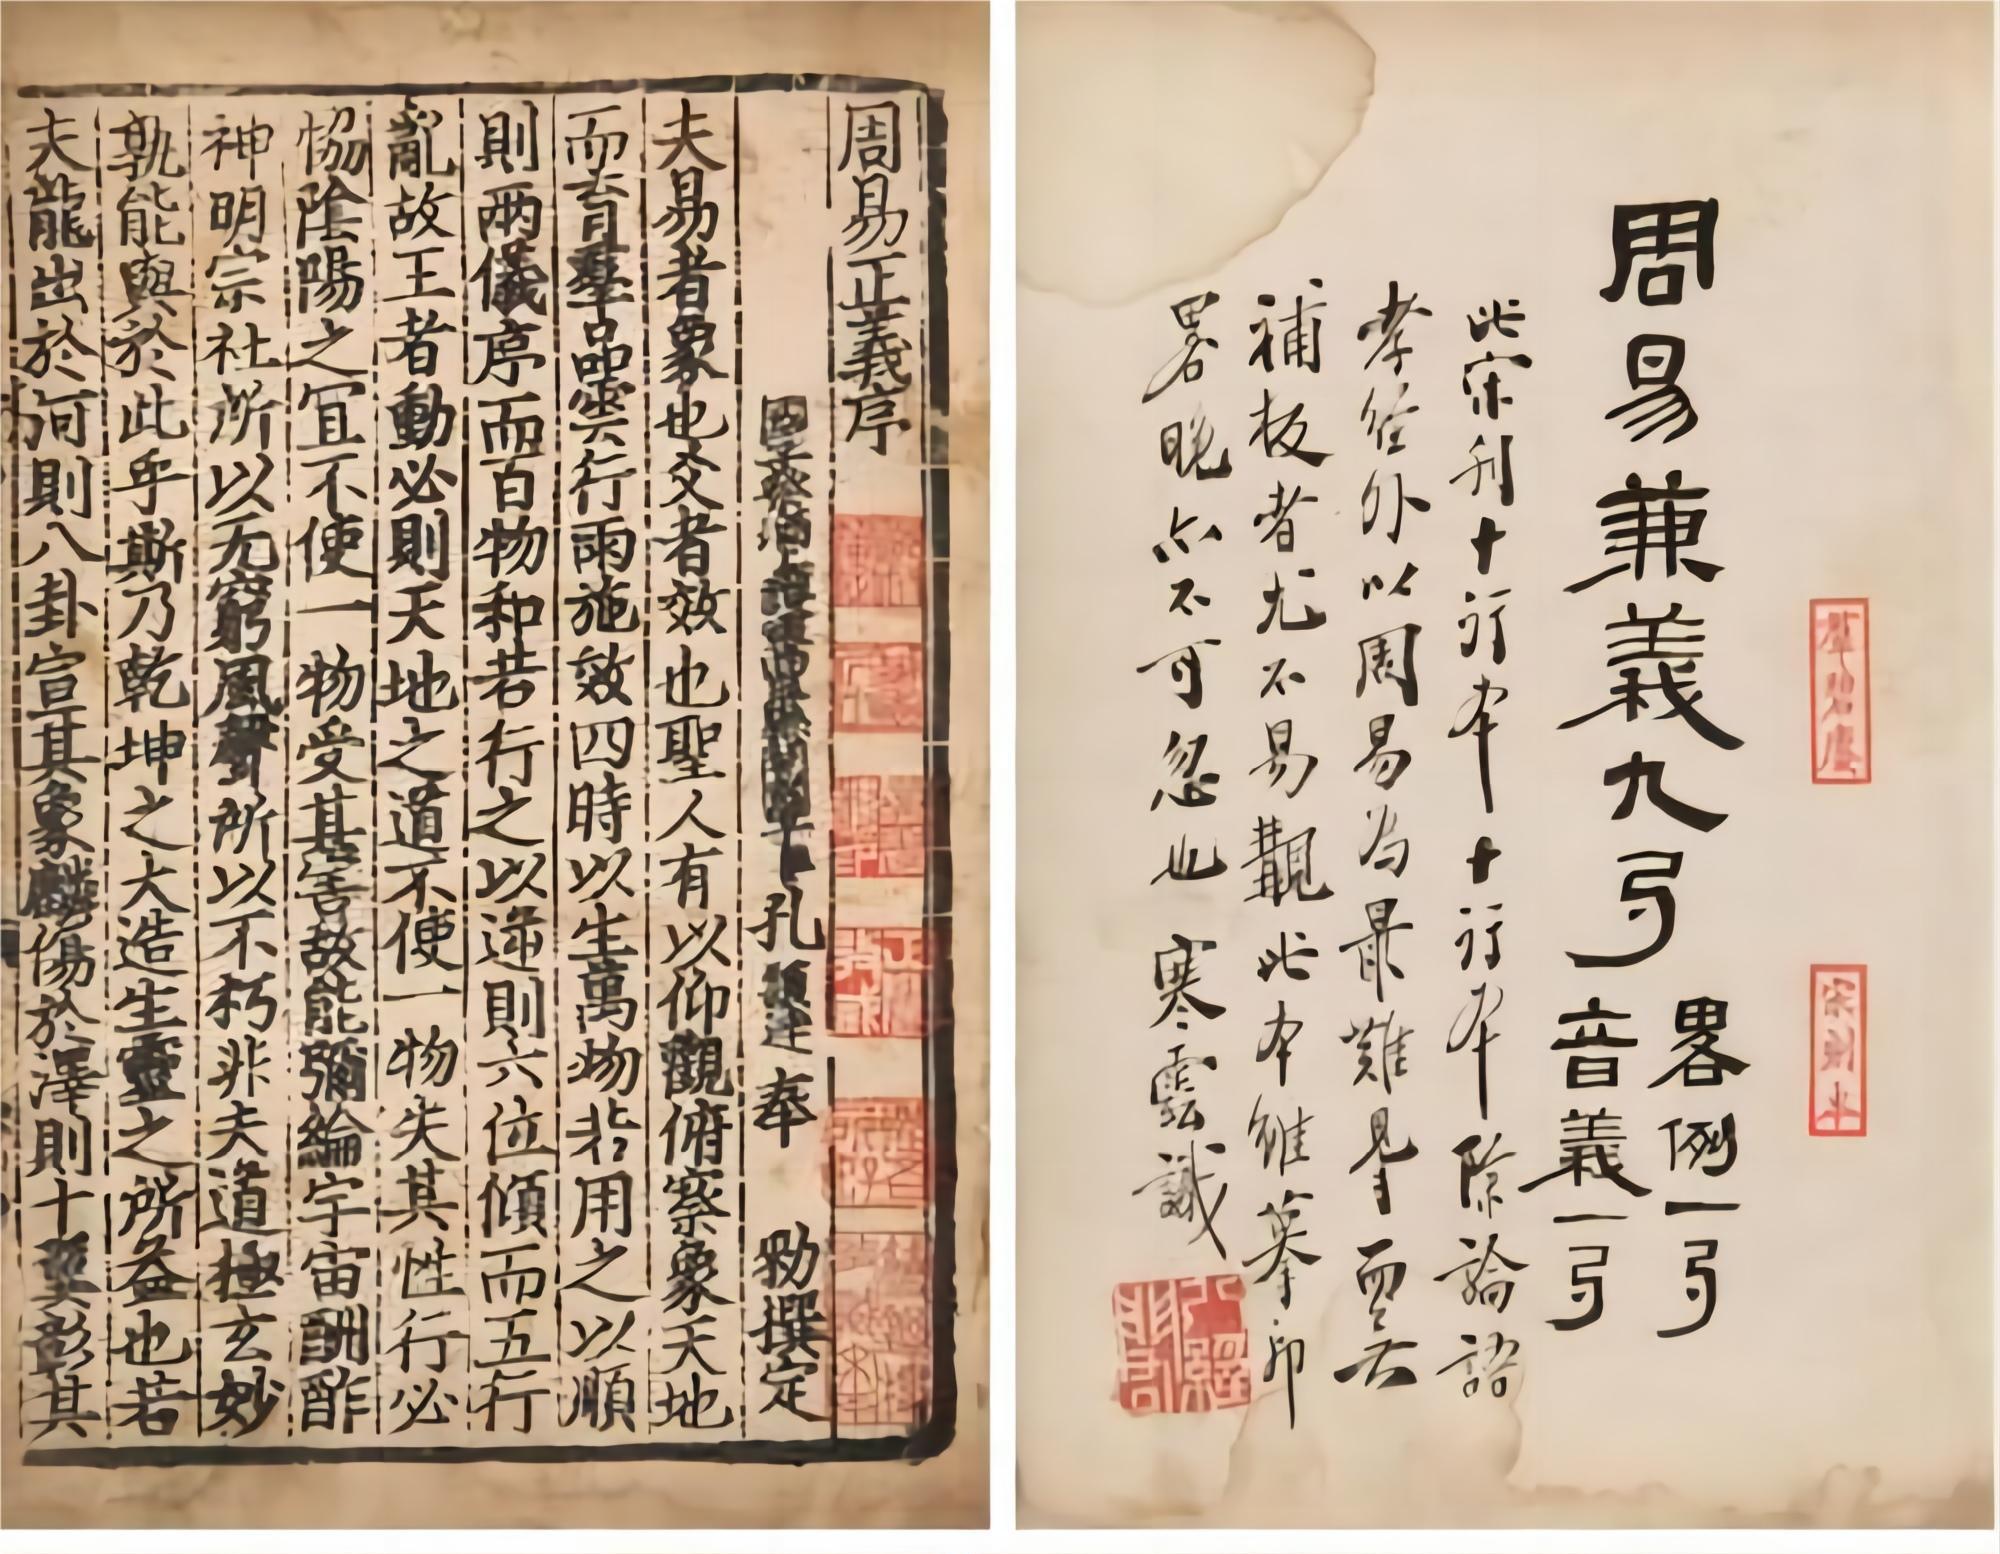 周易兼義九弓
畧例一弓
音義一弓
此宋刊十行本十行本除論語
孝經外以周易為最難見而无
補板者尤不易覯此本雖摹印
畧晚亦不可忽也 寒雲識
八經閣
周易正義序
孔穎達奉 勑撰定
夫易者象也爻者效也聖人有以仰觀俯察象天地
而育羣品雲行雨施效四時以生萬物若用之以順
則兩儀序而百物和若行之以逆則六位傾而五行
亂故王者動必則天地之道不使一物失其性行必
恊陰陽之宜不使一物受其害故能彌綸宇宙酬酢
神明宗社所以无窮風聲所以不朽非夫道極玄妙
孰能與於此乎斯乃乾坤之大造生靈之所益也若
夫龍出於河則八卦宣其象麟傷於澤則十翼彰其